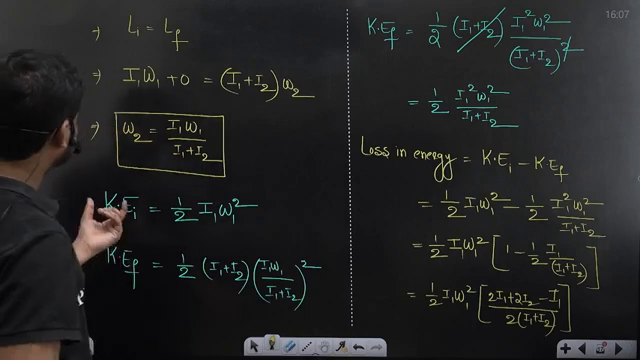 16:07
⇒ L₁ = L_f
⇒ I₁ω₁ + 0 = (I₁+I₂) ω₂
⇒ ω₂ = I₁ω₁ / (I₁+I₂)
K.E_i = 1/2 I₁ω₁²
K.E_f = 1/2 (I₁+I₂) (I₁ω₁ / (I₁+I₂))²
K.E_f = 1/2 (I₁+I₂) I₁²ω₁² / (I₁+I₂)²
= 1/2 I₁²ω₁² / (I₁+I₂)
Loss in energy = K.E_i - K.E_f
= 1/2 I₁ω₁² - 1/2 I₁²ω₁² / (I₁+I₂)
= 1/2 I₁ω₁² [1 - 1/2 I₁ / (I₁+I₂)]
= 1/2 I₁ω₁² [(2I₁+2I₂-I₁) / 2(I₁+I₂)]